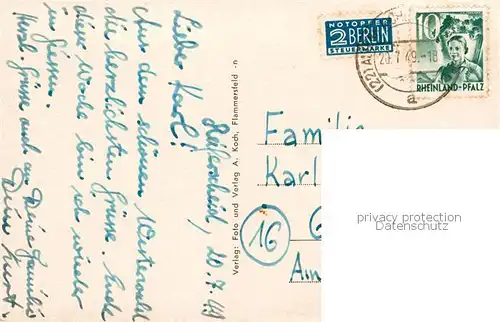 NOTOPFER
2 BERLIN
STEUERMARKE
10
RHEINLAND-PFALZ
20.7.49.-18
a
Reiferscheid, 20.7.49
Lieber Karl!
Aus dem schönen Westerwald
die herzlichsten Grüsse. Ende
diese Woche bin ich wieder
in Giessen.
Herzl. Grüsse auch an Deine Familie
Dein Kurt.
Verlag: Foto und Verlag A. Koch, Flammersfeld
Familie
Karl
16
G
Am
privacy protection
Datenschutz